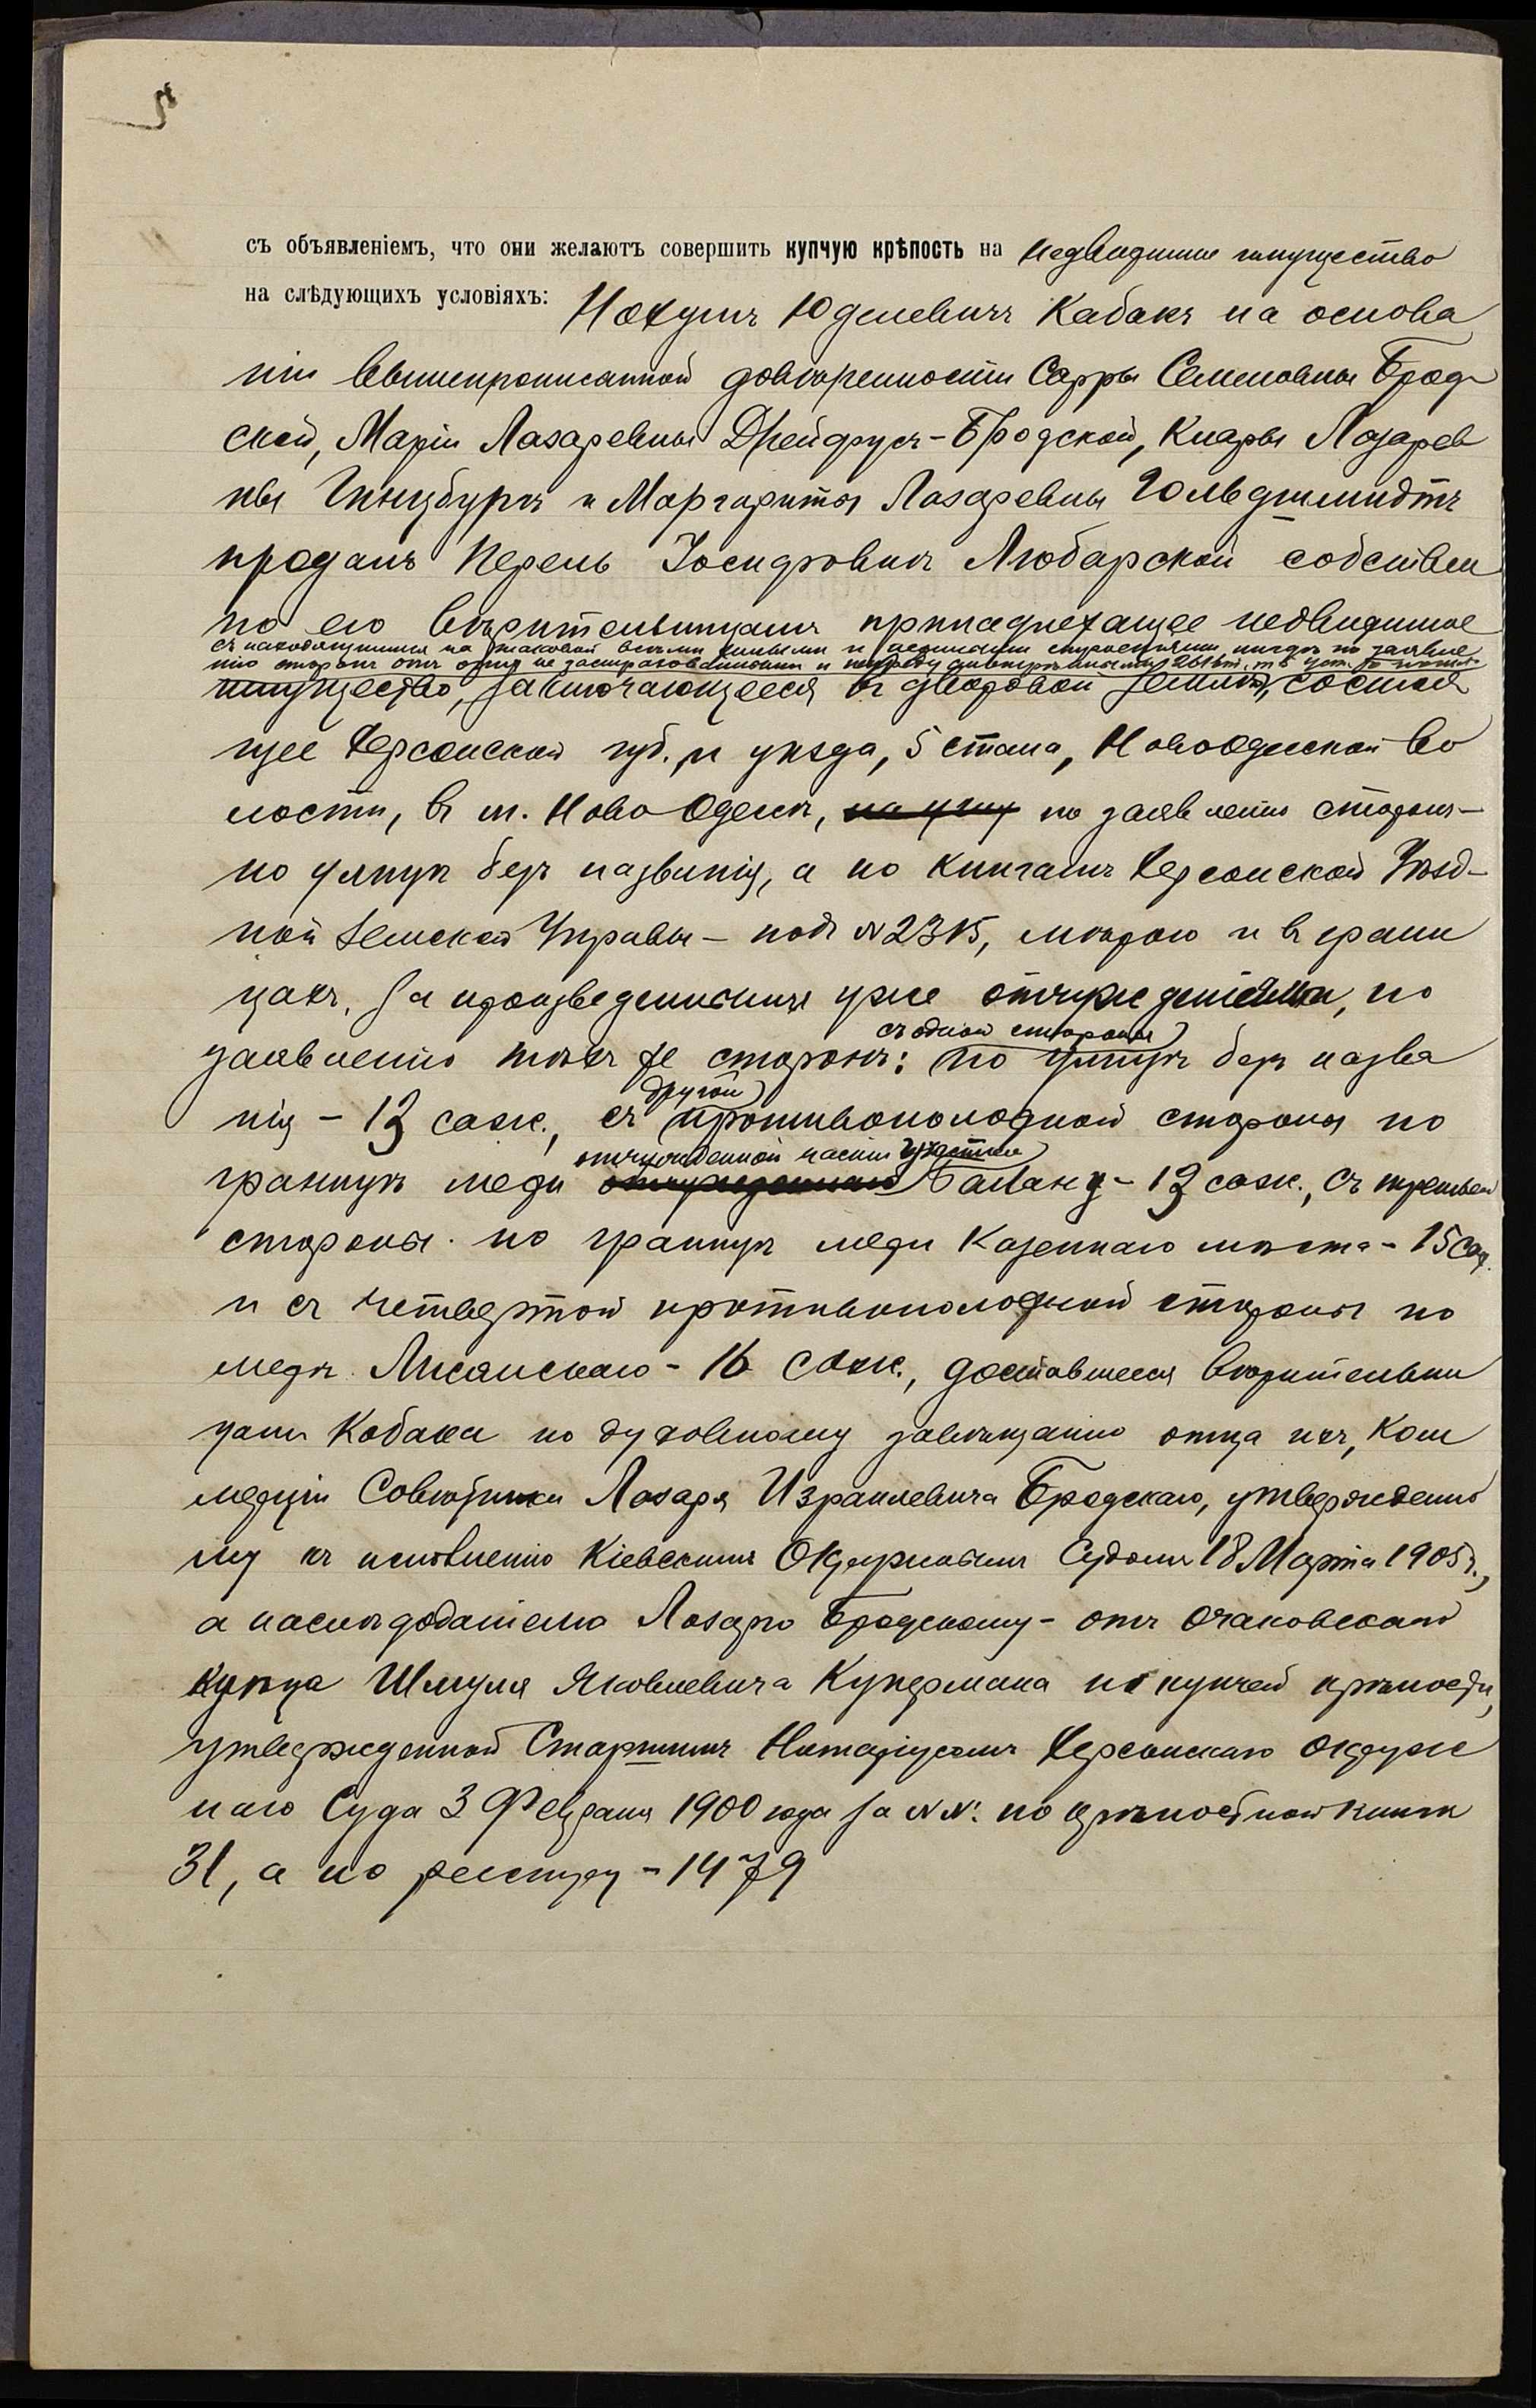 съ объявленіемъ, что они желаютъ совершить купчую крѣпость на недвижимое имущество
на слѣдующихъ условіяхъ: Нохумъ Юделевичъ Кабакъ на основа
ніи вышепрописанной довѣренности Сарры Семеновны Брод
ской, Маріи Лазаревны Дрейфусъ-Бродской, Клары Лазарев
ны Гинцбургъ и Маргариты Лазаревны Гольдшмидтъ
продалъ Перель Іосифовнѣ Любарской собствен
но его вѣрительницамъ принадлежащее недвижимое
съ находящимися на таковой всѣми жилыми и нежилыми строеніями, нигдѣ по заявле
нію сторонъ отъ огня не застрахованными и
имущество, заключающееся въ дворовой землѣ, состоя
щее Херсонской губ. и уѣзда, 5 стана, Новоодесской во
лости, въ м. Ново Одессѣ, на улиц по заявленію сторонъ-
по улицѣ безъ названія, а по книгамъ Херсонской Уѣзд-
ной Земской Управы - подъ № 2315, мѣрою и въ грани
цахъ, за произведеннымъ уже отчужденіемъ, по
заявленію тѣхъ же сторонъ: съ одной стороны по улицѣ безъ назва
нія - 13 саж., съ другой противоположной стороны по
границѣ межи отчужденной части участка Баланд - 13 саж., съ третьей
стороны по границѣ межи Казеннаго мѣста - 15 саж.
и съ четвертой противоположной стороны по
межѣ Лисянскаго - 16 саж., доставшееся вѣрительни
цамъ Кабака по духовному завѣщанію отца ихъ, Ком
мерціи Совѣтника Лазаря Израилевича Бродскаго, утвержденно
му къ исполненію Кіевскимъ Окружнымъ Судомъ 18 Марта 1905 г.,
а наслѣдодателю Лазарю Бродскому - отъ Очаковскаго
купца Шмуля Яковлевича Купермана по купчей крѣпости,
утвержденной Старшимъ Нотаріусомъ Херсонскаго Окруж
наго Суда 3 Февраля 1900 года за №№: по крѣпостной книгѣ
31, а по реестру - 1479